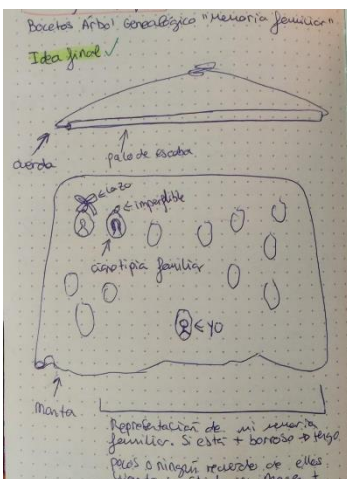 Bocetos Árbol Genealógico "Memoria familiar"
Idea final ✓
cuerda
palo de escoba
lazo
imperdible
cianotipia familiar
YO
manta
Representación de mi memoria
familiar. Si está + borroso → tengo
pocos o ningún recuerdo de ellos.